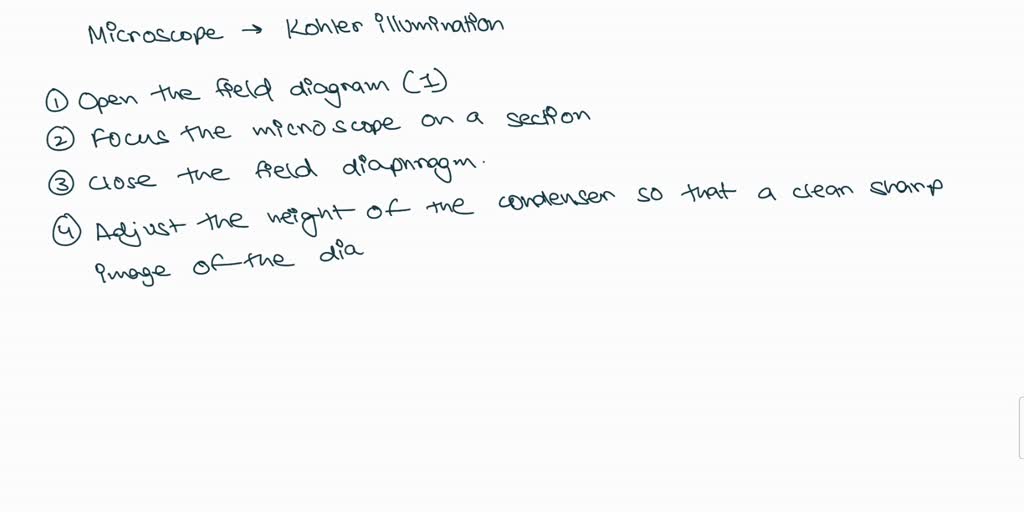 Microscope → Kohler illumination
① Open the field diagram (1)
② Focus the microscope on a section
③ Close the field diaphragm.
④ Adjust the height of the condenser so that a clean sharp
image of the dia